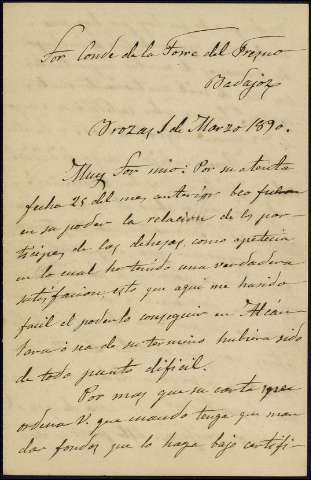 Sor Conde de la Torre del Fresno
Badajoz
Brozas 1 de Marzo 1890.
Muy Sor mio: Por su atenta
fecha 25 del mes anterior veo
en su poder la relacion de los par-
ticipes de las dehesas, como apetecia
en lo cual he tenido una verdadera
satisfacion, esto que aqui me ha sido
facil el poderlo conseguir en Alcán-
tara ó sea de su termino hubiera sido
de todo punto dificil.
Por mas que su carta
ordena V. que cuando tenga que man-
dar fondos que lo haga bajo certifi-